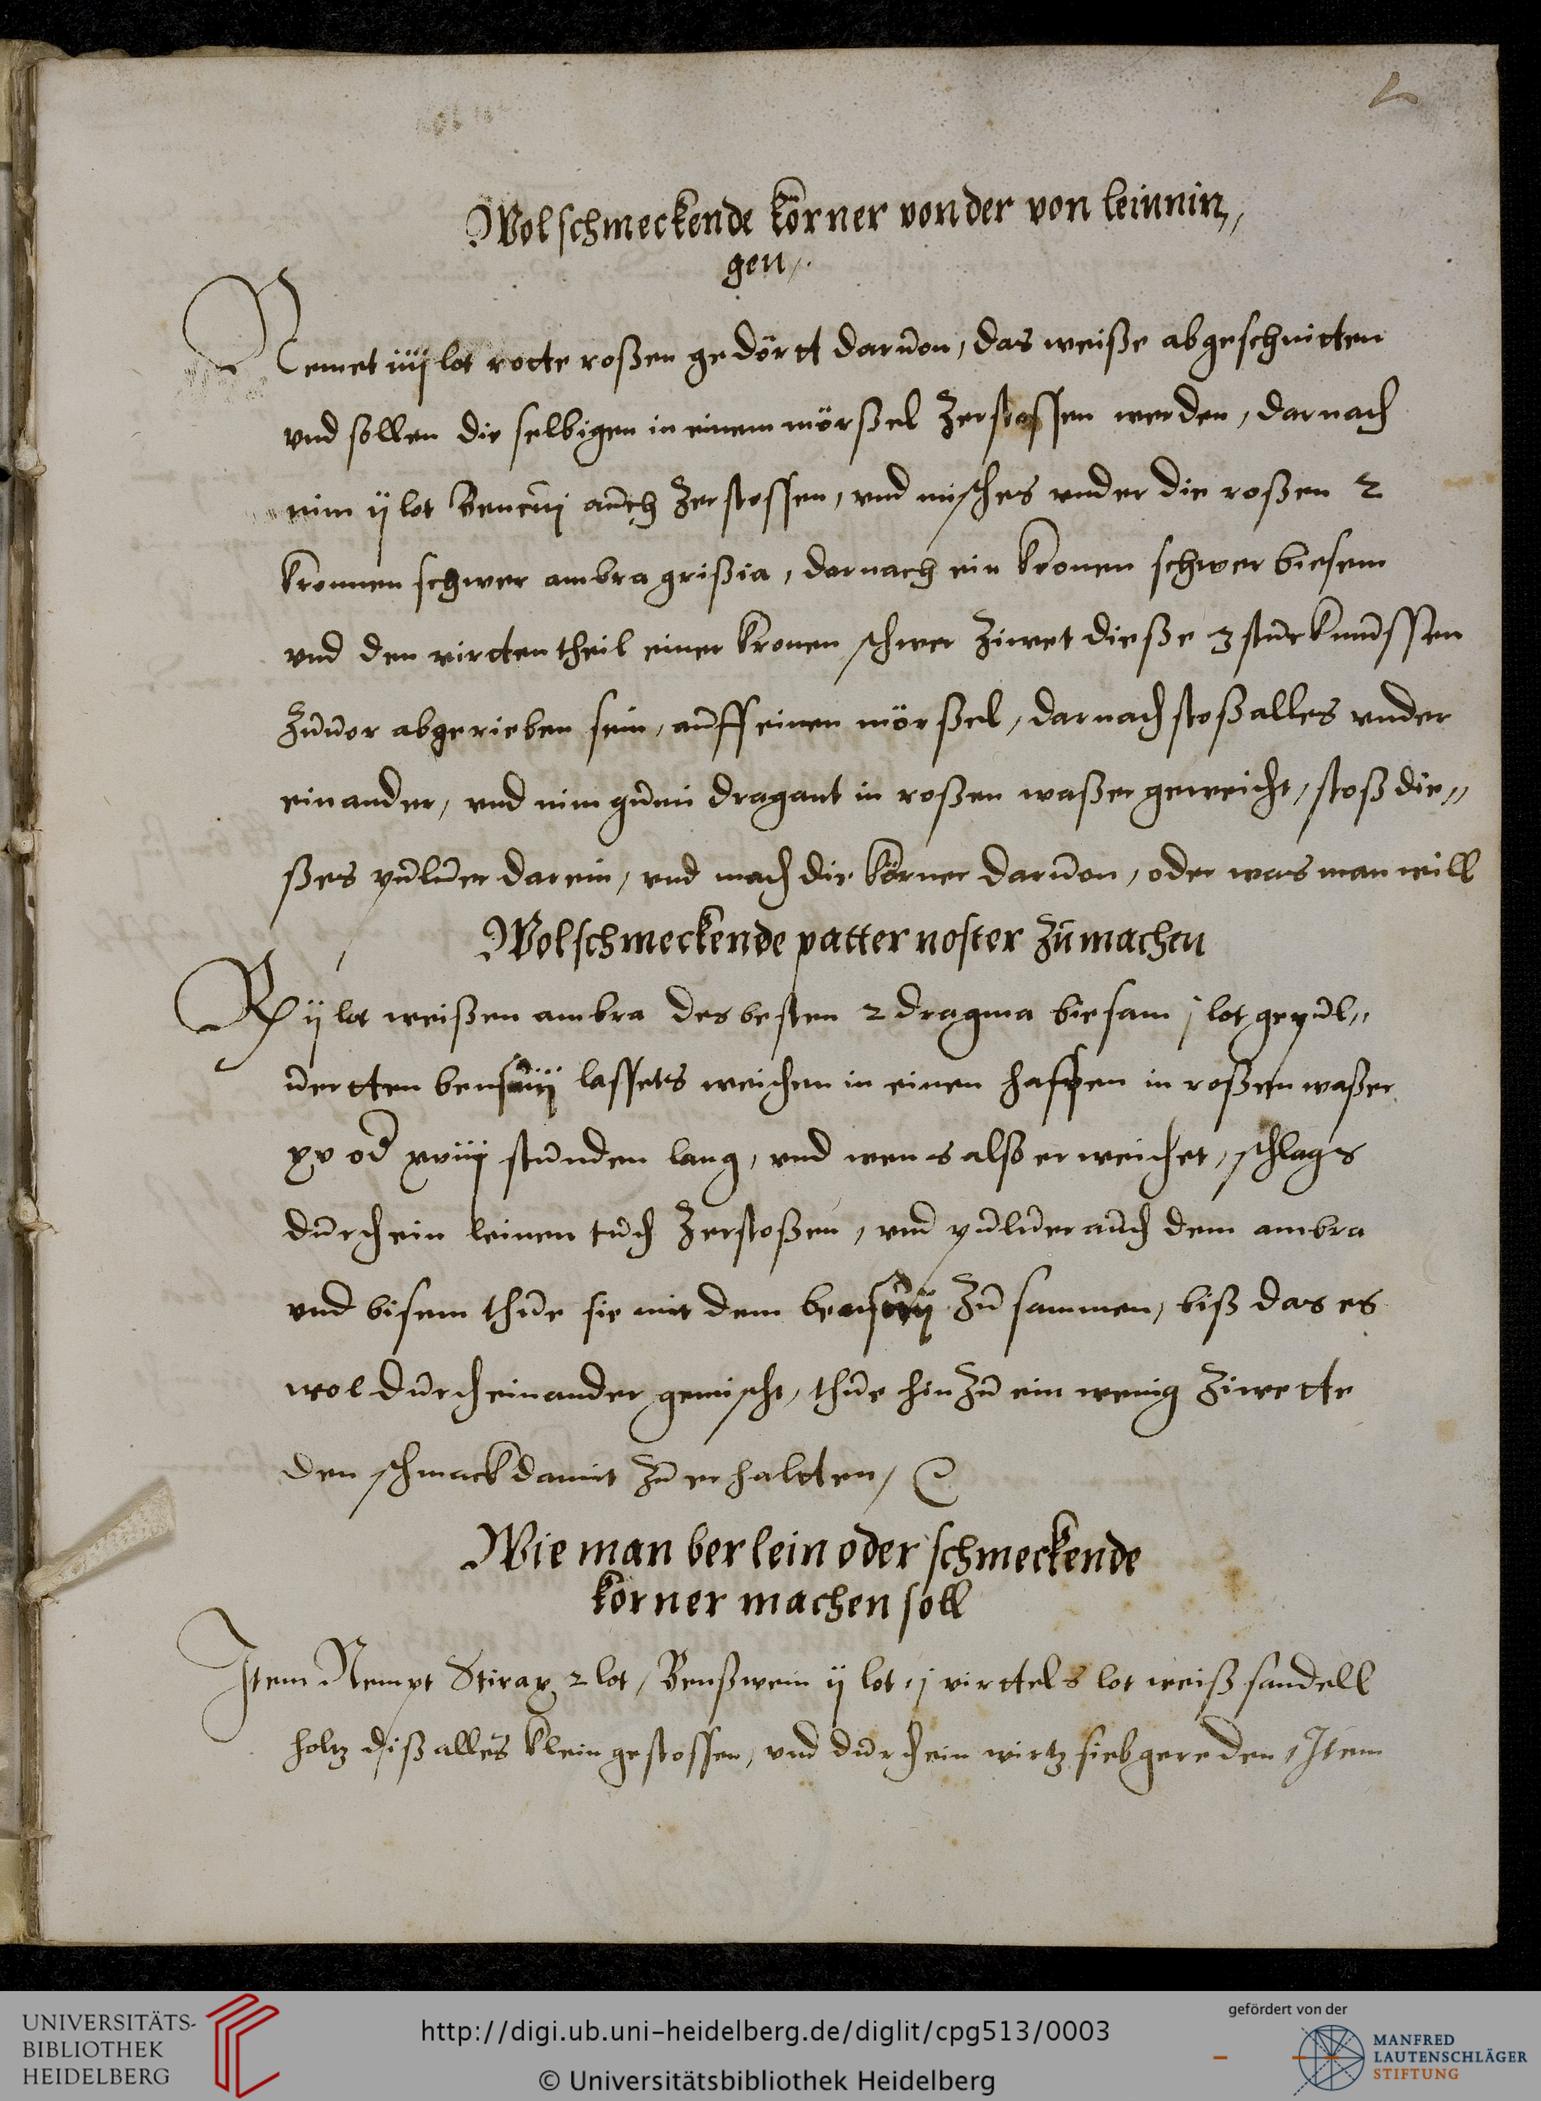 Wolschmeckende körner von der von leinnin„
gen,.
Nemet iiij lot rotte roßen gedörtt daruon, das weiße abgeschnitten
vnd sollen die selbigen in einem mörßel zerstossen werden, darnach
nim ij lot auch zerstossen, vnd misches vnder die roßen 2
kronnen schwer ambra grißia, darnach ein kronen schwer biesem
vnd den virtten theil einer kronen schwer ziwet dieße 3 stuck mussen
zuuor abgerieben sein, auff einen mörßel, darnach stoß alles vnder
einander, vnd nim gumi dragant in roßen waßer geweicht, stoß die„
ßes puluer darein, vnd mach die körner daruon, oder was man will
Wolschmeckende patter noster zu machen
Rp ij lot weißen ambra des besten 2 dragma biesam j lot gepul„
uertten lassets weichen in einen haffen in roßen waßer
xv od xviij stunden lang, vnd wens alß erweichet, schlags
durch ein leinen tuch zerstoßen, vnd puluer auch dem ambra
vnd bisem thue sie mit dem zu sammen, biß das es
wol durch einander gemischt, thue hin zu ein wenig ziwette
den schmack damit zu erhaltten,
Wie man berlein oder schmeckende
körner machen soll
Item Nempt Stirax 2 lot, Benßwein ij lot, j virttels lot weiß sandell
holtz diß alles klein gestossen, vnd durch ein wirtz sieb gereden, Item
UNIVERSITÄTS-
BIBLIOTHEK
HEIDELBERG
http://digi.ub.uni-heidelberg.de/diglit/cpg513/0003
© Universitätsbibliothek Heidelberg
gefördert von der
MANFRED
LAUTENSCHLÄGER
STIFTUNG